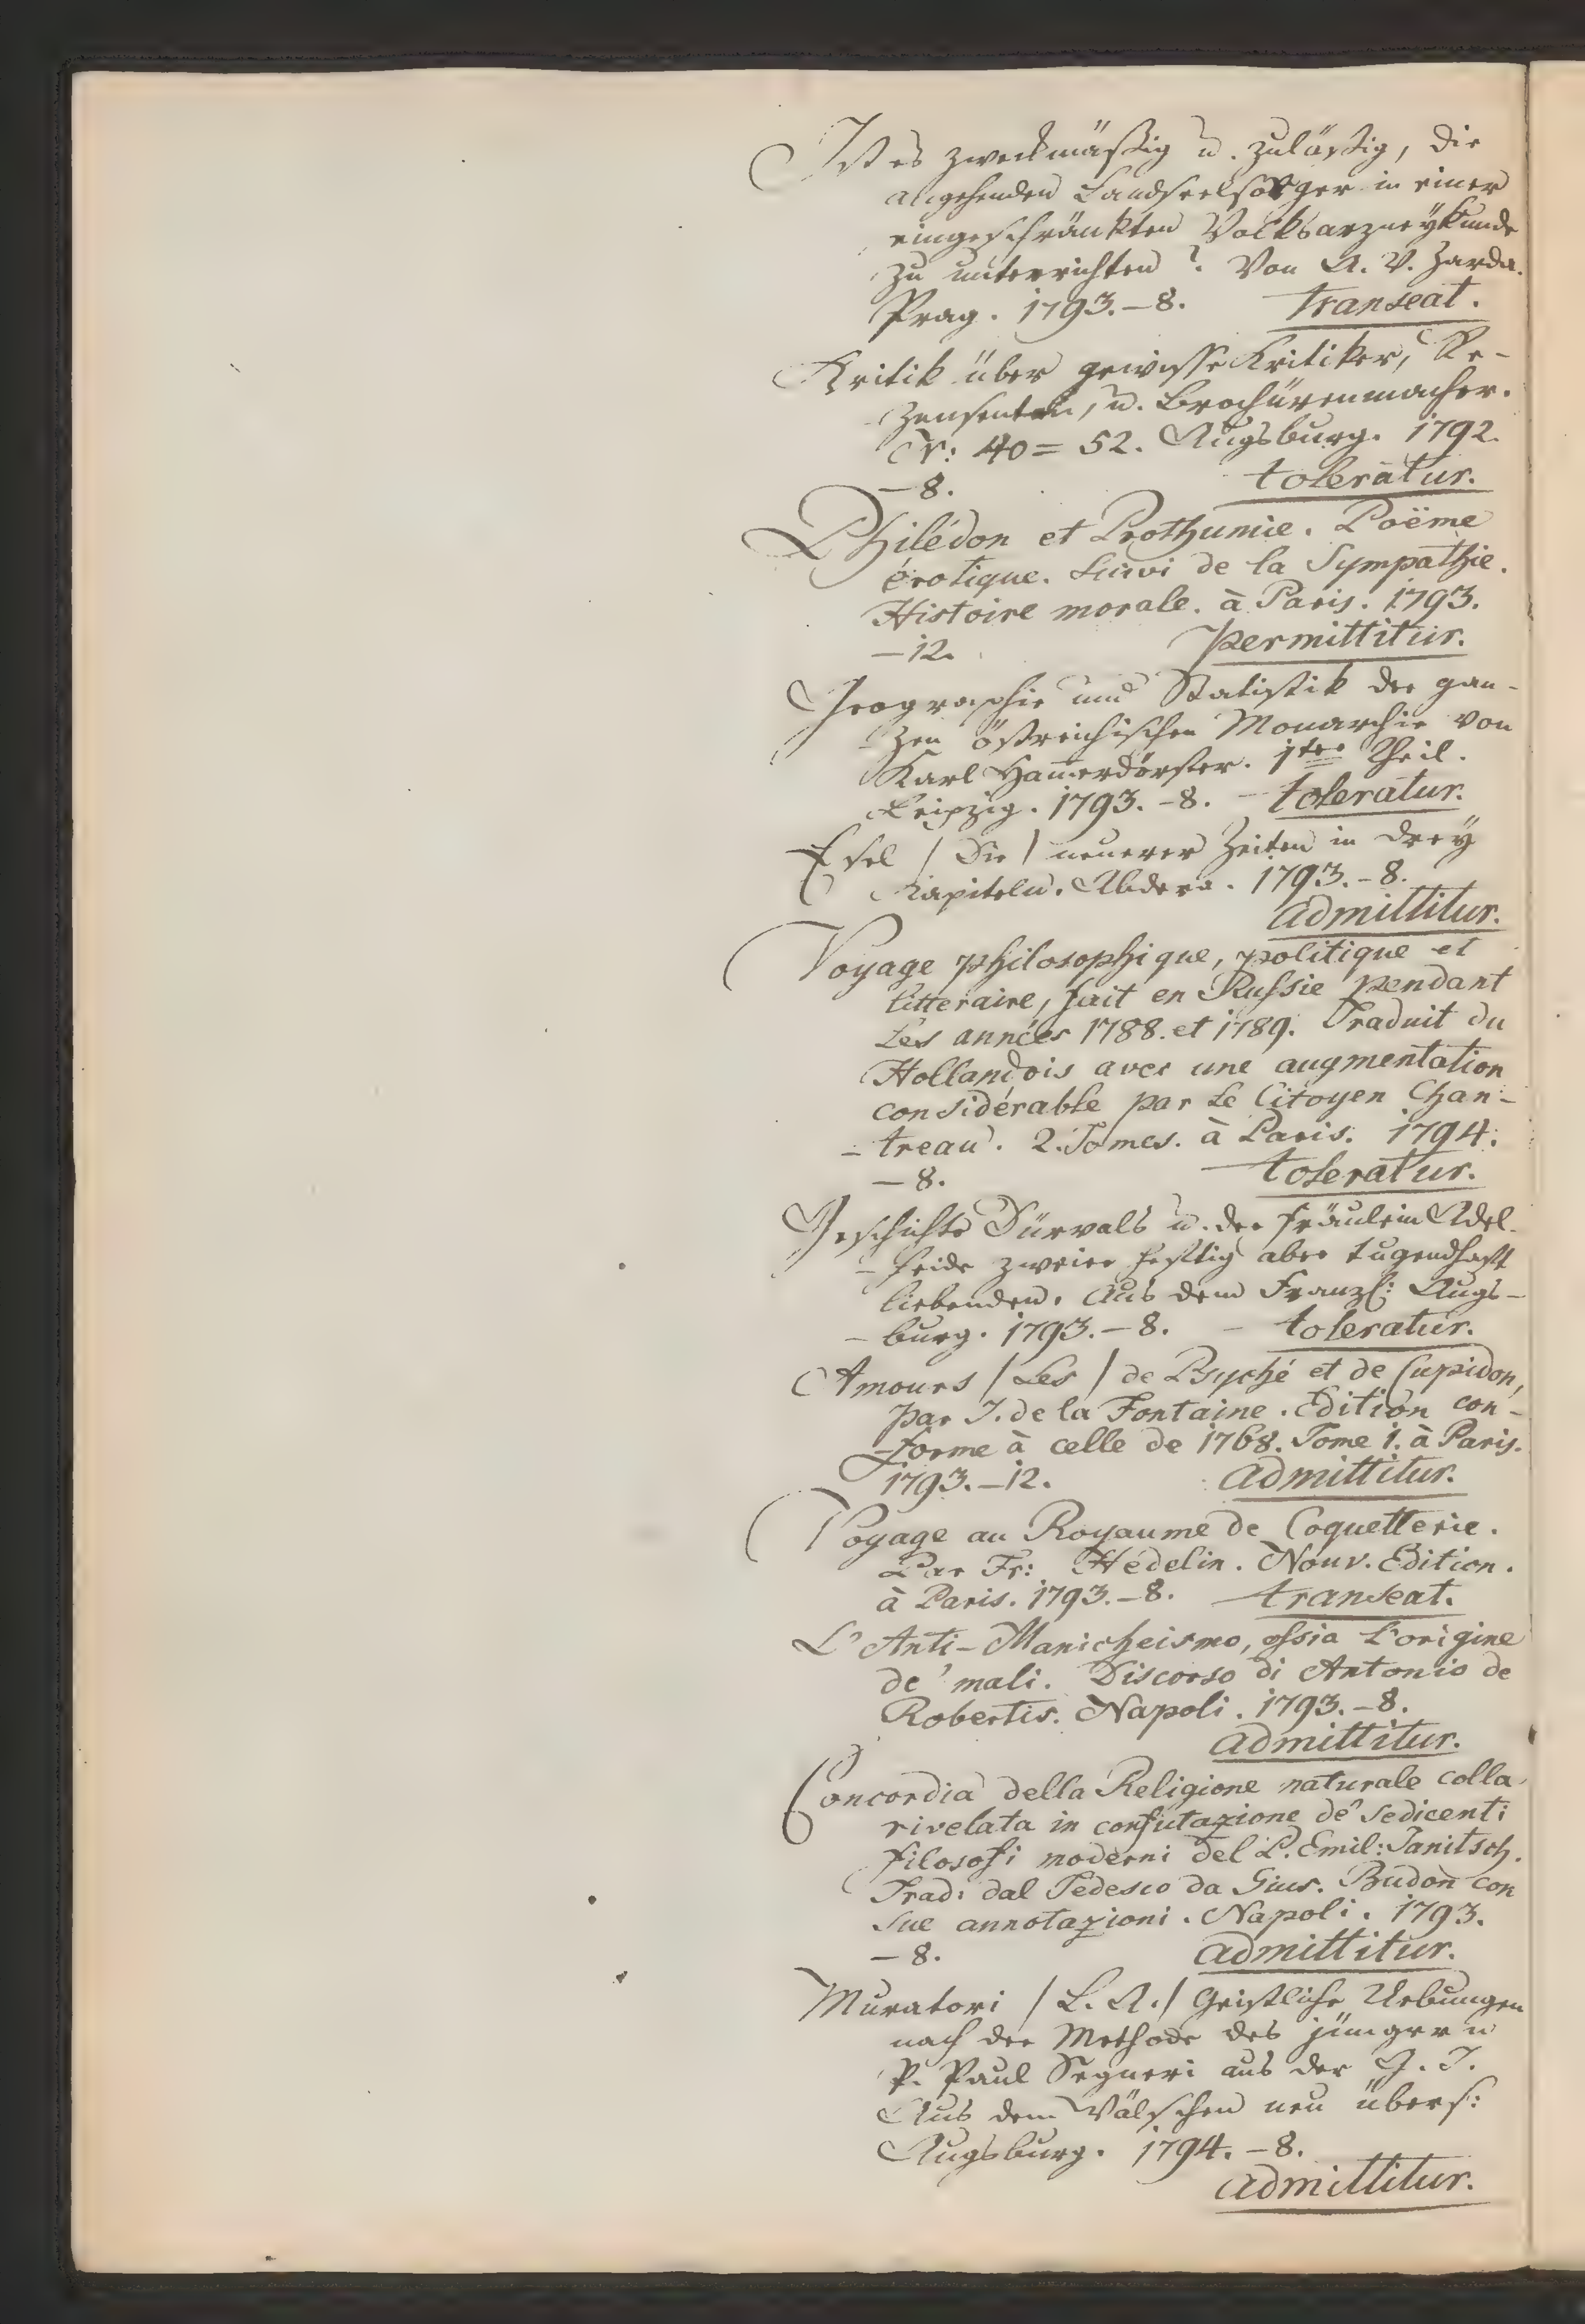 Ist es zweckmäßig u. zuläßig, die
angehenden Landseelsorger in einer
eingeschränkten Volksarzneykunde
zu unterrichten? Von A. V. Zarda.
Prag. 1793. – 8. transeat.
Kritik über gewisse Kritiker, Re-
zensenten, u. Brochürenmacher.
Nr: 40 = 52. Augsburg. 1792.
– 8. toleratur.
Philédon et Prothumie. Poëme
érotique. Suivi de la Sympathie.
Histoire morale. à Paris. 1793.
– 12. permittitur.
Geographie und Statistik der gan-
zen östreichischen Monarchie von
Karl Ham̄erdörfer. 1ter Theil.
Leipzig. 1793. – 8. – toleratur.
Esel / Die / neuerer Zeiten in drey
Kapiteln. Abdera. 1793. – 8.
admittitur.
Voyage philosophique, politique et
litteraire, fait en Russie pendant
les années 1788. et 1789. Traduit du
Hollandois avec une augmentation
considérable par le Citoyen Chan-
- treau. 2. Tomes. à Paris. 1794.
– 8. toleratur.
Geschichte Dürvals u. der Fräulein Adel-
- heide zweier heftig aber tugendhaft
liebenden. Aus dem Franzs: Augs-
- burg. 1793. – 8. – toleratur.
Amours / Les / de Psyché et de Cupidon,
par J. de la Fontaine. Edition con-
-forme à celle de 1768. Tome 1. à Paris.
1793. – 12. admittitur.
Voyage au Royaume de Coquetterie.
Par Fr: Hédelin. Nouv. Edition.
à Paris. 1793. – 8. transeat.
L'Anti-Manicheismo, ossia l'origine
de' mali. Discorso di Antonio de
Robertis. Napoli. 1793. – 8.
admittitur.
Concordia della Religione naturale colla
rivelata in confutazione de' sedicenti
filosofi moderni del P. Emil: Janitsch.
Trad: dal Tedesco da Gius. Budon con
sue annotazioni. Napoli. 1793.
– 8. admittitur.
Muratori / L. A. / Geistliche Uebungen
nach der Methode des jüngern
P. Paul Segneri aus der G. J.
Aus dem Wälschen neu übers:
Augsburg. 1794. – 8.
admittitur.